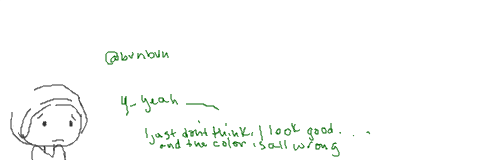 @bvnbvn
y-yeah
I just don't think I look good....
and the color is all wrong